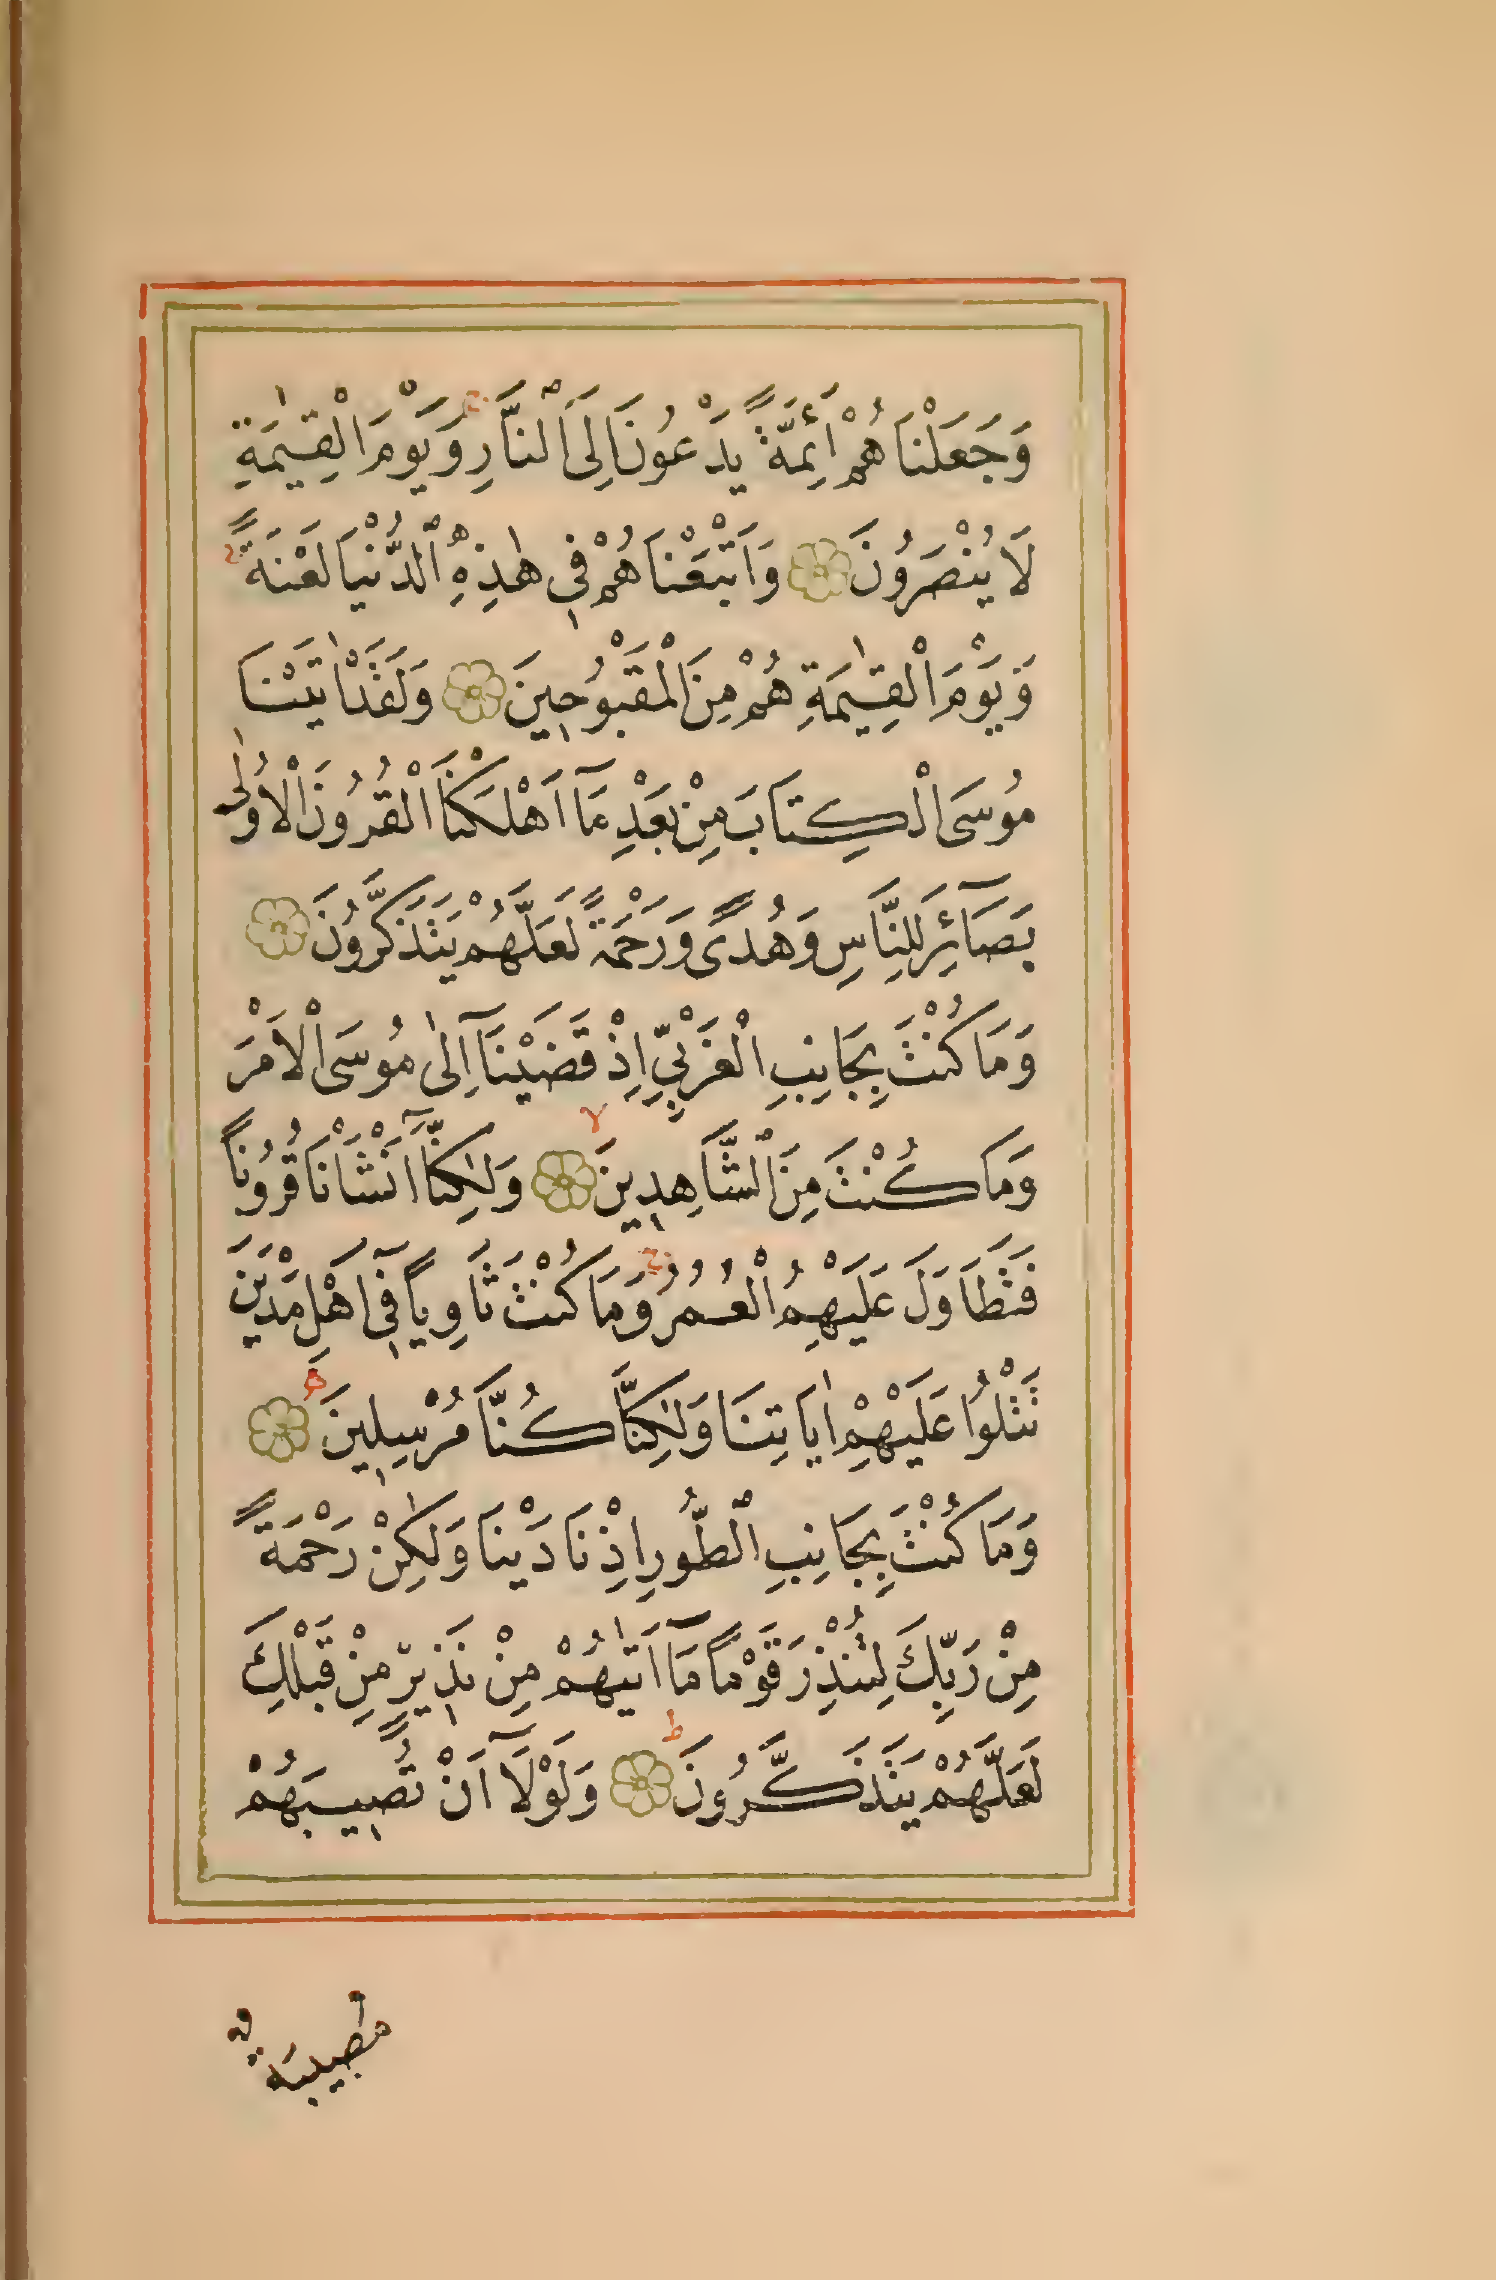 وَجَعَلْنَاهُمْ اَئِمَّةً يَدْعُونَ اِلَى النَّارِ وَيَوْمَ الْقِيٰمَةِ
لَا يُنْصَرُونَ وَاَتْبَعْنَاهُمْ فِي هٰذِهِ الدُّنْيَا لَعْنَةً
وَيَوْمَ الْقِيٰمَةِ هُمْ مِنَ الْمَقْبُوحِينَ وَلَقَدْ اٰتَيْنَا
مُوسَى الْكِتَابَ مِنْ بَعْدِ مَآ اَهْلَكْنَا الْقُرُونَ الْاُولٰى
بَصَآئِرَ لِلنَّاسِ وَهُدًى وَرَحْمَةً لَعَلَّهُمْ يَتَذَكَّرُونَ
وَمَا كُنْتَ بِجَانِبِ الْغَرْبِيِّ اِذْ قَضَيْنَآ اِلٰى مُوسَى الْاَمْرَ
وَمَا كُنْتَ مِنَ الشَّاهِدِينَ وَلٰكِنَّآ اَنْشَاْنَا قُرُونًا
فَتَطَاوَلَ عَلَيْهِمُ الْعُمُرُ وَمَا كُنْتَ ثَاوِيًا فِٓي اَهْلِ مَدْيَنَ
تَتْلُوا عَلَيْهِمْ اٰيَاتِنَا وَلٰكِنَّا كُنَّا مُرْسِلِينَ
وَمَا كُنْتَ بِجَانِبِ الطُّورِ اِذْ نَادَيْنَا وَلٰكِنْ رَحْمَةً
مِنْ رَبِّكَ لِتُنْذِرَ قَوْمًا مَآ اَتٰيهُمْ مِنْ نَذِيرٍ مِنْ قَبْلِكَ
لَعَلَّهُمْ يَتَذَكَّرُونَ وَلَوْلَآ اَنْ تُصِيبَهُمْ